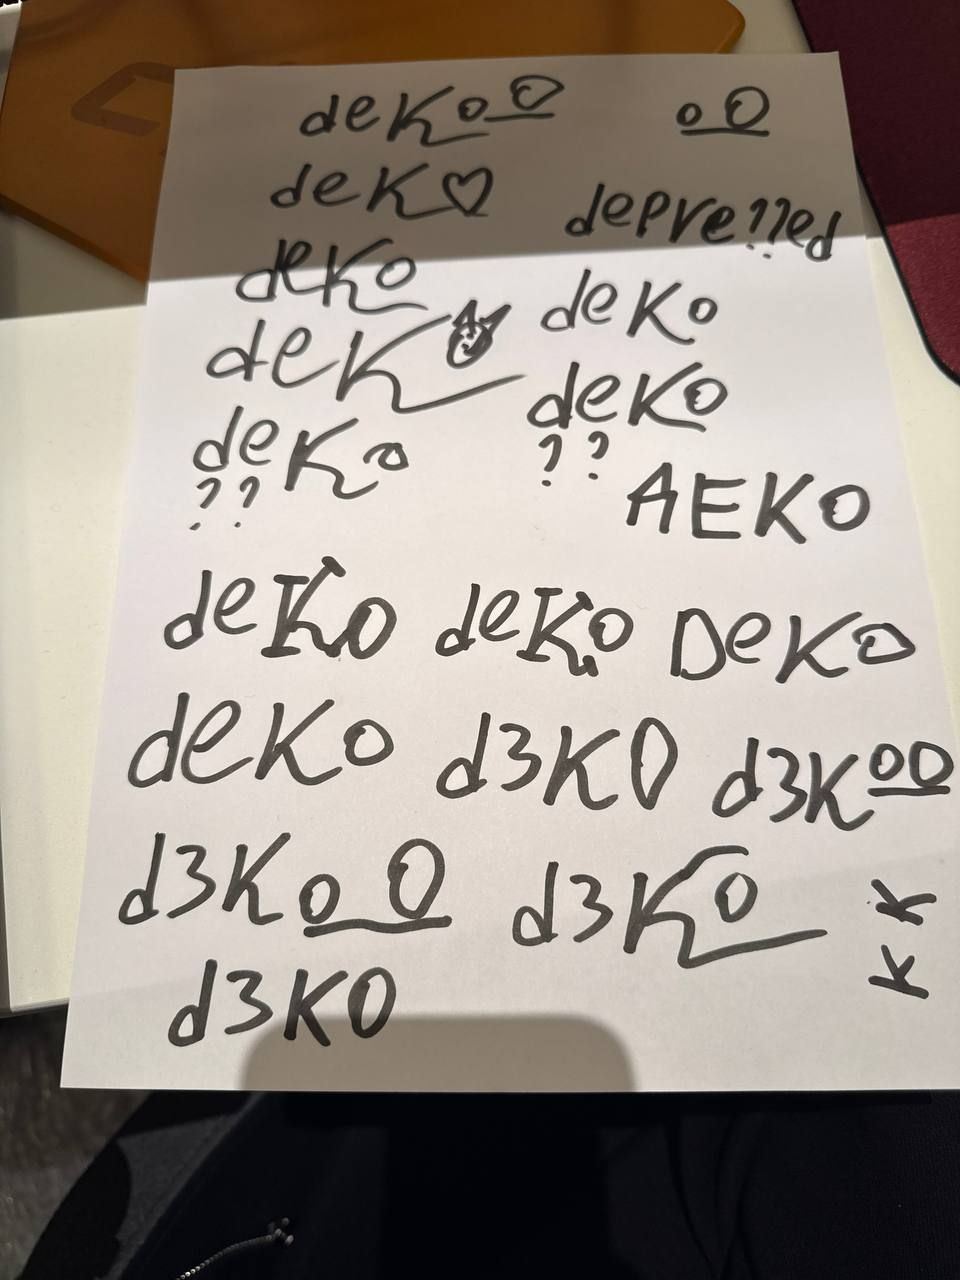 deKoO oO
deK♡
depre??ed
deKo
deKo
deK
deKo
deKo
??
??
AEKO
deKo deKo DeKo
deKo d3KO d3KoO
d3KoO d3Ko
K K
d3KO